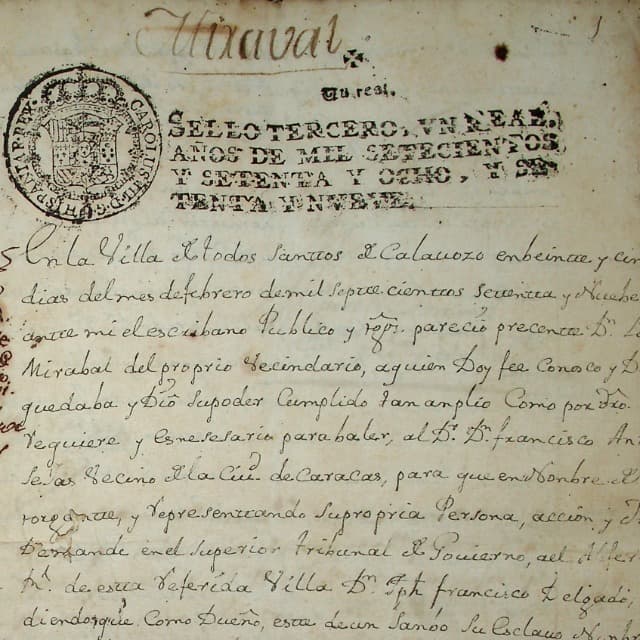 Miraval
1
Un real.
SELLO TERCERO, VN REAL,
AÑOS DE MIL SETECIENTOS
Y SETENTA Y OCHO, Y SE-
TENTA Y NVEVE.
CAROLUS III D G HISPANIAR REX
En la Villa de todos Santtos de Calavozo en beinte y
dias del mes de febrero de mil septtecienttos Settentta y Nuebe
antte mi el escribano Publico y pareció precentte Dn.
Mirabal del proprio Vecindario, a quien Doy fee Conosco y
quedaba y Dió Su poder Cumplido tan amplio Como por dro.
rreguiere y es nesesario para baler, al Dr. Dn. francisco
Vecino de la Ciud. de Caracas, para que en Nombre
ottorgantte, y rrepresenttando su propria Persona, acción y
Demande en el superior tribunal de Govierno, a el
Rl. de estta rreferida Villa Dn. Jph francisco Delgado,
diendo Como Dueño, estta de un Sambo Su Esclavo